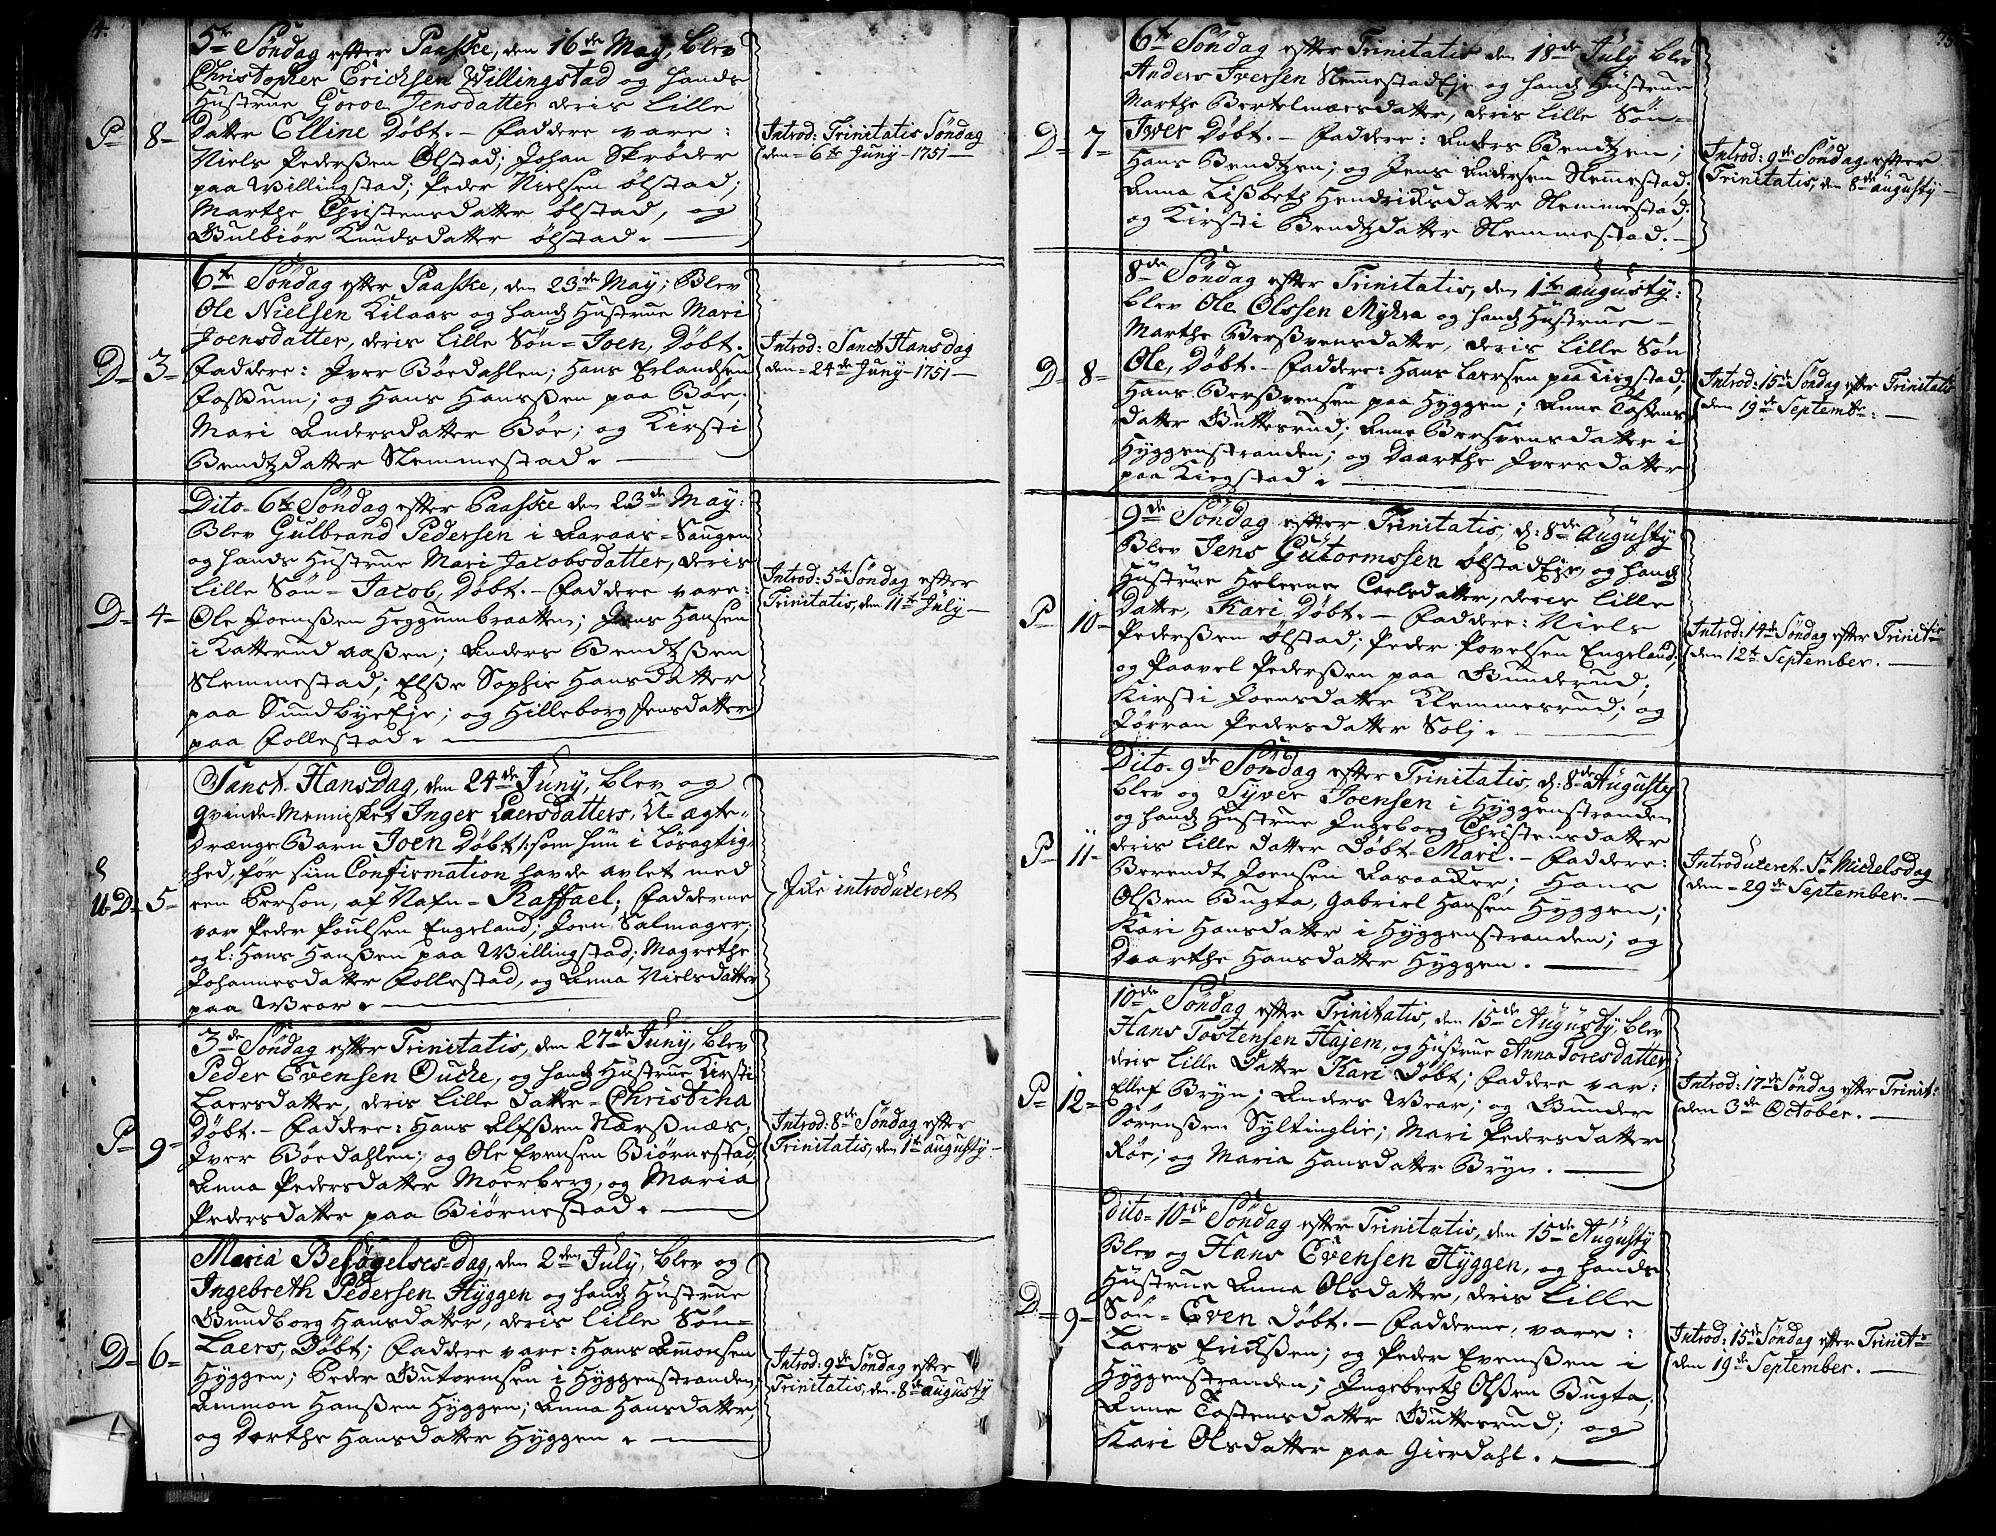 4.
5te Søndag efter Paaske, den 16de May, blev
Christopher Ericksen Willingstad og hands
Hustrue Goroe Jensdatter deris lille
P= 8= Datter Elline Døbt. – Faddere vare:
Niels Pederßen Ølstad; Johan Skrøder
paa Willingstad; Peder Nielsen ølstad;
Marthe Christensdatter ølstad, og
Gulbiør Knudsdatter ølstad. —
Introd: Trinitatis Søndag
den 6te Juny 1751 —
6te Søndag efter Paaske, den 23de May; Blev
Ole Nielsen Kilaas og hands Hustrue Mari
Joensdatter, deris lille Søn = Joen, Døbt.
D= 3= Faddere: Iver Böedahlen; Hans Erlandsen
Foßum; og Hans Hansßen paa Böe;
Mari Andersdatter Böe; og Kirsti
Bendtzdatter Slemmestad. —
Introd: Sanct Hansdag
den 24de Juny 1751 —
Dito 6te Søndag efter Paaske den 23de May:
Blev Gulbrand Pedersen i Aaraas=Saugen
og hands Hustrue Mari Jacobsdatter, deris
lille Søn = Jacob, Døbt. – Faddere vare:
D= 4= Ole Joenßen Heggumbraatten; Jens Hansen
i Katterud aaßen; Anders Bendtzßen
Slemmestad; Elße Sophie Hansdatter
paa SundbyeEje; og Hilleborg Jensdatter
paa Follestad. —
Introd: 5te Søndag efter
Trinitatis, den 11te July —
Sanct Hansdag, den 24de Juny, blev og
qvinde=Mennisket Inger Laersdatters, U=ægte=
Drænge Barn Joen Døbt /: som hun i Løsagtig
hed, før siin Confirmation havde avlet med
U=D= 5= een Person, af Nafn = Raffael; Fadderne
var Peder Poulsen Engeland; Joen Salmager;
og l: Hans Hanßen paa Willingstad; Magrethe
Johannesdatter Follestad, og Anna Nielsdatter
paa Wear. —
Icke introduceret
3de Søndag efter Trinitatis, den 27de Juny, blev
Peder Evensen Oucke, og hands Hustrue Kirsti
Laersdatter, deris lille Datter = Christina
Døbt. – Faddere: Hans Elfßen Narßnæs;
P= 9= Iver Böedahlen; og Ole Evensen Biørnestad,
Anna Pedersdatter Moerberg, og Maria
Pedersdatter paa Biørnestad. —
Introd: 8de Søndag efter
Trinitatis, den 1te augusty
Maria Besøgelses=dag, den 2den July, blev og
Ingebreth Pedersen Hyggen og hands Hustrue
Gundborg Hansdatter, deris lille Søn=
Laers, Døbt; Faddere vare: Hans Amonsen
D= 6= Hyggen; Peder Gutormsen i Hyggenstranden;
Ammon Hanßen Hyggen; Anna Hansdatter,
og Dorthe Hansdatter Hyggen. —
Introd: 9de Søndag efter
Trinitatis, den 8de augusty
75
6te Søndag efter Trinitatis den 18de July blev
Anders Iversen SlemmestadEje og hands Hustrue
Marthe Bertelmæesdatter, deris lille Søn=
D= 7= Iver Døbt. – Faddere: Anders Bendtzen;
Hans Bendtzen; og Jens Andersen Slemmestad:
Anna Lißbeth Hendricksdatter Slemmestad;
og Kirsti Bendtzdatter Slemmestad. —
Introd: 9de Søndag efter
Trinitatis, den 8de augusty —
8de Søndag efter Trinitatis, den 1te augusty:
blev Ole Olssen Myhra og hands Hustrue –
Marthe Berßvensdatter, deris lille Søn
D= 8= Ole, Døbt. – Faddere: Hans Laersen paa Kirgstad;
Hans Berßvensen paa Hyggen; Anne Tostens
datter Guttesrud; Anne Bersvensdatter i
Hyggenstranden; og Daarthe Iversdatter
paa Kirgstad. —
Introd: 15de Søndag efter Trinitatis
den 19de Septemb: —
9de Søndag efter Trinitatis, d: 8de Augusty
Blev Jens Gutormssen ølstadEje, og hands
Hustrue Heleene Carlsdatter, deris lille
P= 10= Datter, Kari, Døbt. – Faddere: Niels
Pederßen Ølstad; Peder Povelsen Engeland;
og Paavel Pederßen paa Gunderud;
Kirsti Joensdatter Klemmesrud; og
Jörran Pedersdatter Solj. —
Introd: 14de Søndag efter Trinit
den 12te September. —
Dito 9de Søndag efter Trinitatis, d: 8de Augusty
blev og Syver Joensen i Hyggenstranden
og hands Hustrue Ingeborg Christensdatter
P= 11= deris lille Datter Døbt = Mari. – Faddere:
Berendt Joensen Aaraaker; Hans
Olßen Bugta, Gabriel Hansen Hyggen;
Kari Hansdatter i Hyggenstranden; og
Daarthe Hansdatter Hyggen. —
Introduceret St Michelsdag
den 29de September. —
10de Søndag efter Trinitatis, den 15de Augusty, blev
Hans Tostensen Hajem, og Hustrue Anna Toresdatter,
deris lille Datter Kari Døbt; Faddere var:
P= 12= Ellef Bryn; Anders Wear; og Gunder
Sørenßen Syltinglie; Mari Pedersdatter
Röe; og Maria Hansdatter Bryn. —
Introd: 17de Søndag efter Trinit:
den 3de October. —
Dito 10de Søndag efter Trinitatis, den 15de Augusty
Blev og Hans Evensen Hyggen, og hands
Hustrue Anna Olsdatter, deris lille
D= 9= Søn = Even Døbt. – Fadderne, vare:
Laers Erickßen; og Peder Evenßen i
Hyggenstranden; Ingebreth Olßen Bugta,
Anne Tostensdatter Guttesrud; og
Kari Olsdatter paa Gierdahl. —
Introd: 15de Søndag efter Trinit
den 19de September. —